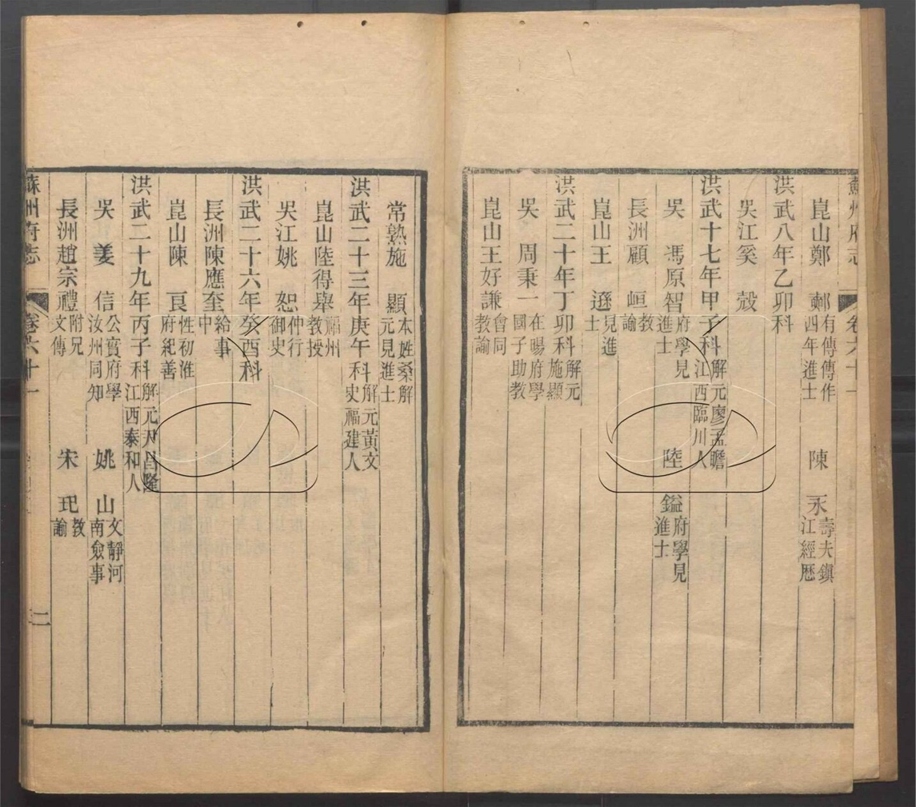 蘇州府志 卷六十一
崑山鄭 有傳傳作 四年進士 陳 永 壽夫鎮 江經歷
洪武八年乙卯科
吳江奚 㲄
洪武十七年甲子科 解元廖孟瞻 江西臨川人
吳 馮原智 府學見 進士 陸 鎰 府學見 進士
長洲顧 恒 教諭
崑山王 遜 見進 士
洪武二十年丁卯科 解元 施顯
吳 周秉一 在暘府學 國子助教
崑山王好謙 會同 教諭
常熟施 顯 本姓桑解 元見進士
洪武二十三年庚午科 解元黃文 史福建人
崑山陸得舉 福州 教授
吳江姚 恕 仲行 御史
洪武二十六年癸酉科
長洲陳應奎 給事 中
崑山陳 良 性初淮 府紀善
洪武二十九年丙子科 解元尹昌隆 江西泰和人
吳 姜 信 公實府學 汝州同知 姚 山 文靜河 南僉事
長洲趙宗禮 附兄 文傳 宋 玭 教 諭
蘇州府志 卷六十一 二